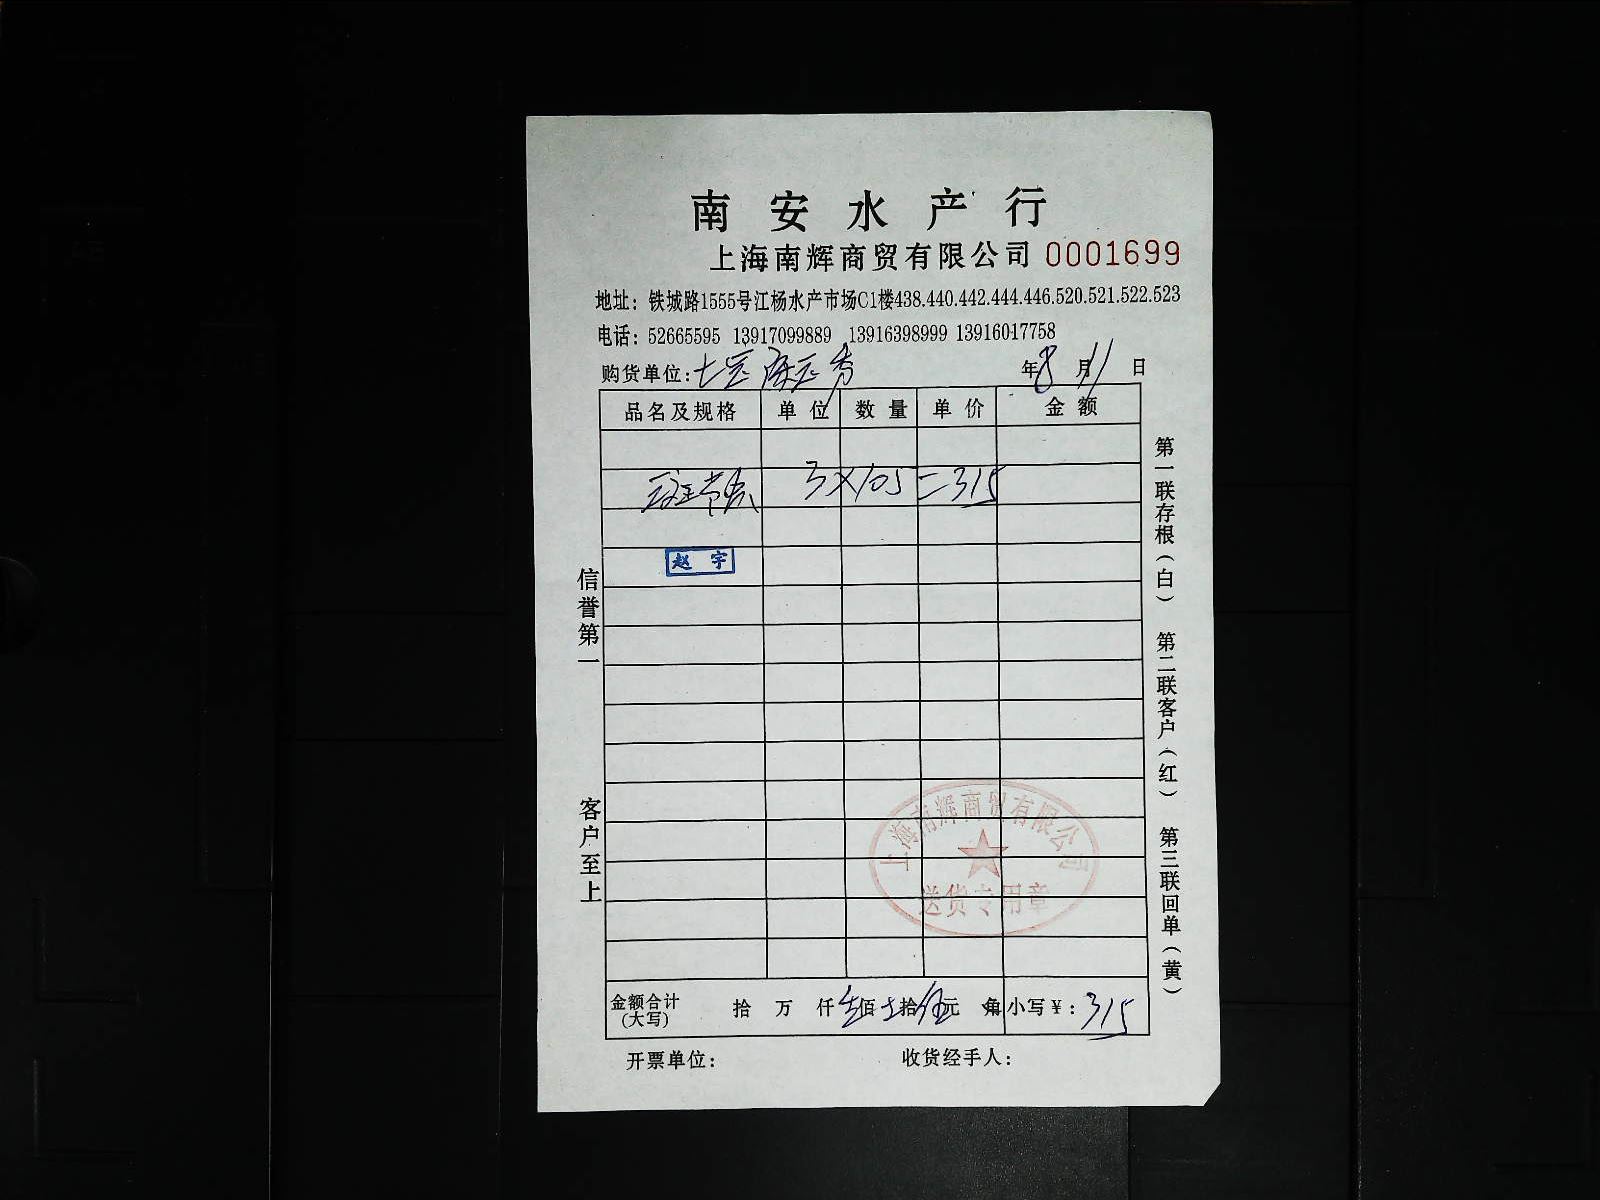 南安水产行
上海南辉商贸有限公司 0001699
地址：铁城路1555号江杨水产市场C1楼438.440.442.444.446.520.521.522.523
电话：52665595 13917099889 13916398999 13916017758
购货单位：
年8月11日
品名及规格 单位 数量 单价 金额
3×105=315
赵宇
信誉第一
客户至上
第一联存根（白） 第二联客户（红） 第三联回单（黄）
上海南辉商贸有限公司
送货专用章
金额合计（大写） 拾 万 仟 叁佰 拾 伍元 角 小写￥：315
开票单位： 收货经手人：